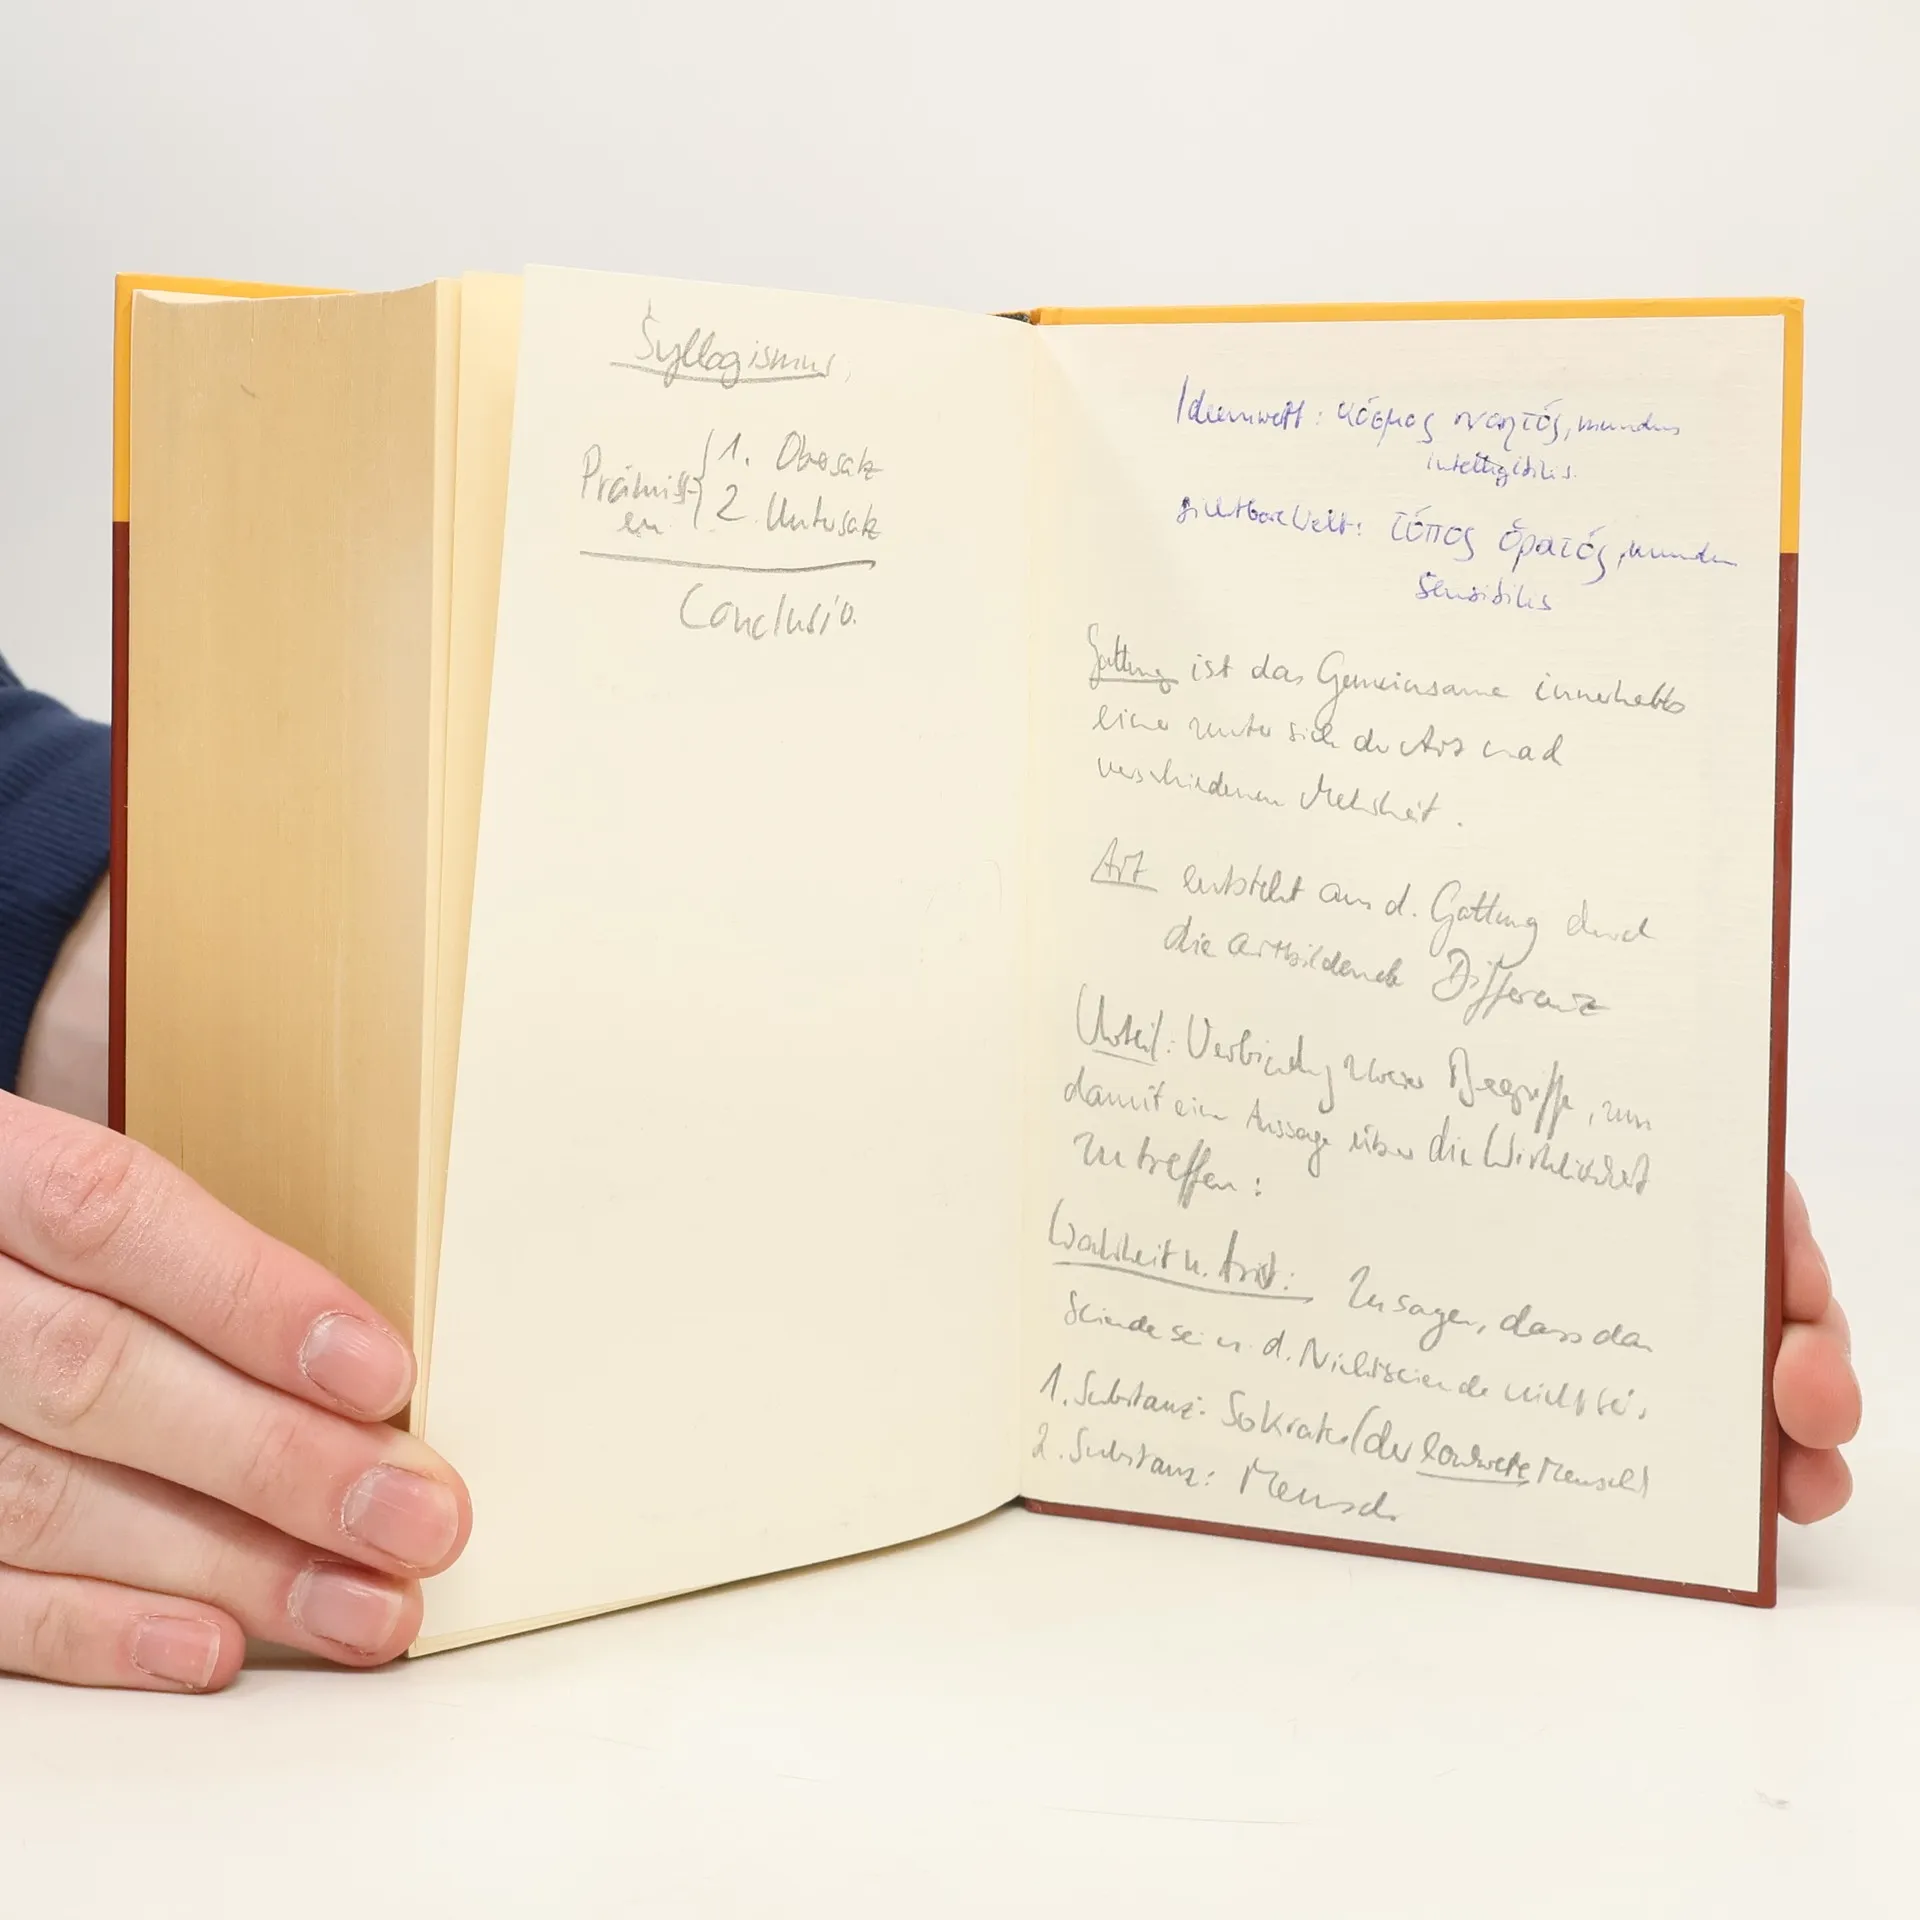 Syllogismus
Prämiss- { 1. Obersatz
en { 2. Untersatz
Conclusio.
Ideenwelt: κόσμος νοητός, mundus
intelligibilis.
sichtbare Welt: τόπος ὁρατός, mundus
sensibilis
Gattung ist das Gemeinsame innerhalb
einer unter sich der Art nach
verschiedenen Mehrheit.
Art entsteht aus d. Gattung durch
die artbildende Differenz
Urteil: Verbindung zweier Begriffe, um
damit eine Aussage über die Wirklichkeit
zu treffen:
Wahrheit n. Arist.: Zu sagen, dass das
Seiende sei u. d. Nichtseiende nicht sei.
1. Substanz: Sokrates (der konkrete Mensch)
2. Substanz: Mensch